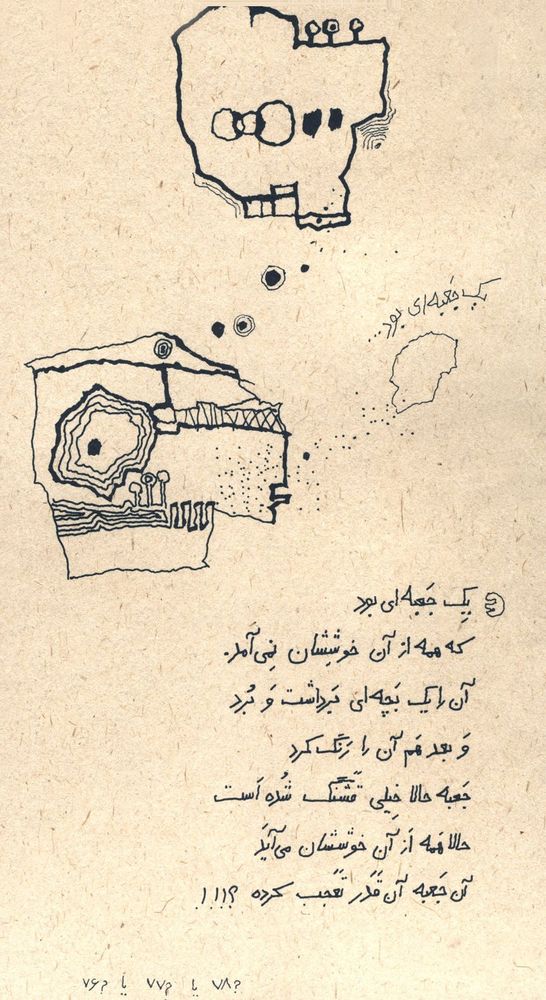 یک جَعبه ای بود...
یِک جَعبه ای بود
که همه از آن خوشِشان نِمی آمد.
آن را یک بَچه ای بَرداشت وَ بُرد
وَ بعد هَم آن را رَنگ کرد
جَعبه حالا خِیلی قَشَنگ شُده اَست
حالا هَمه اَز آن خوشِشان می آیَد
آن جَعبه آن قَدَر تَعجب کرده ؟!!!
۷۸؟ یا ۷۷؟ یا ۷۶؟